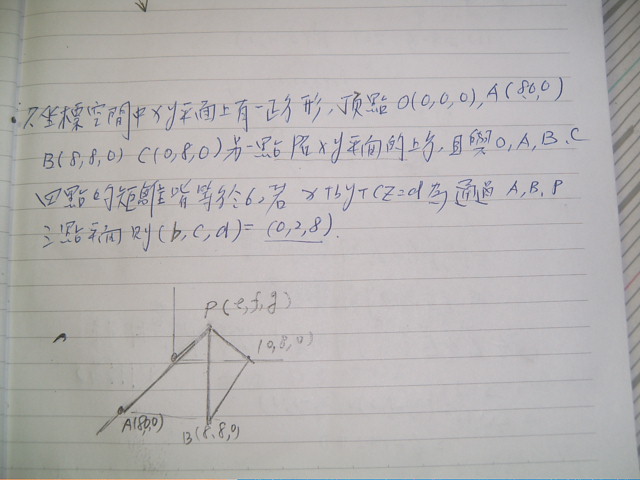 7. 坐標空間中xy平面上有一正方形,頂點O(0,0,0),A(8,0,0)
B(8,8,0) C(0,8,0)另一點P在xy平面的上方,且與O,A,B,C
四點的距離皆等於6,若 x+by+cz=d為通過A,B,P
三點平面則(b,c,d)=(0,2,8).
P(e,f,g)
(0,8,0)
A(8,0,0)
B(8,8,0)